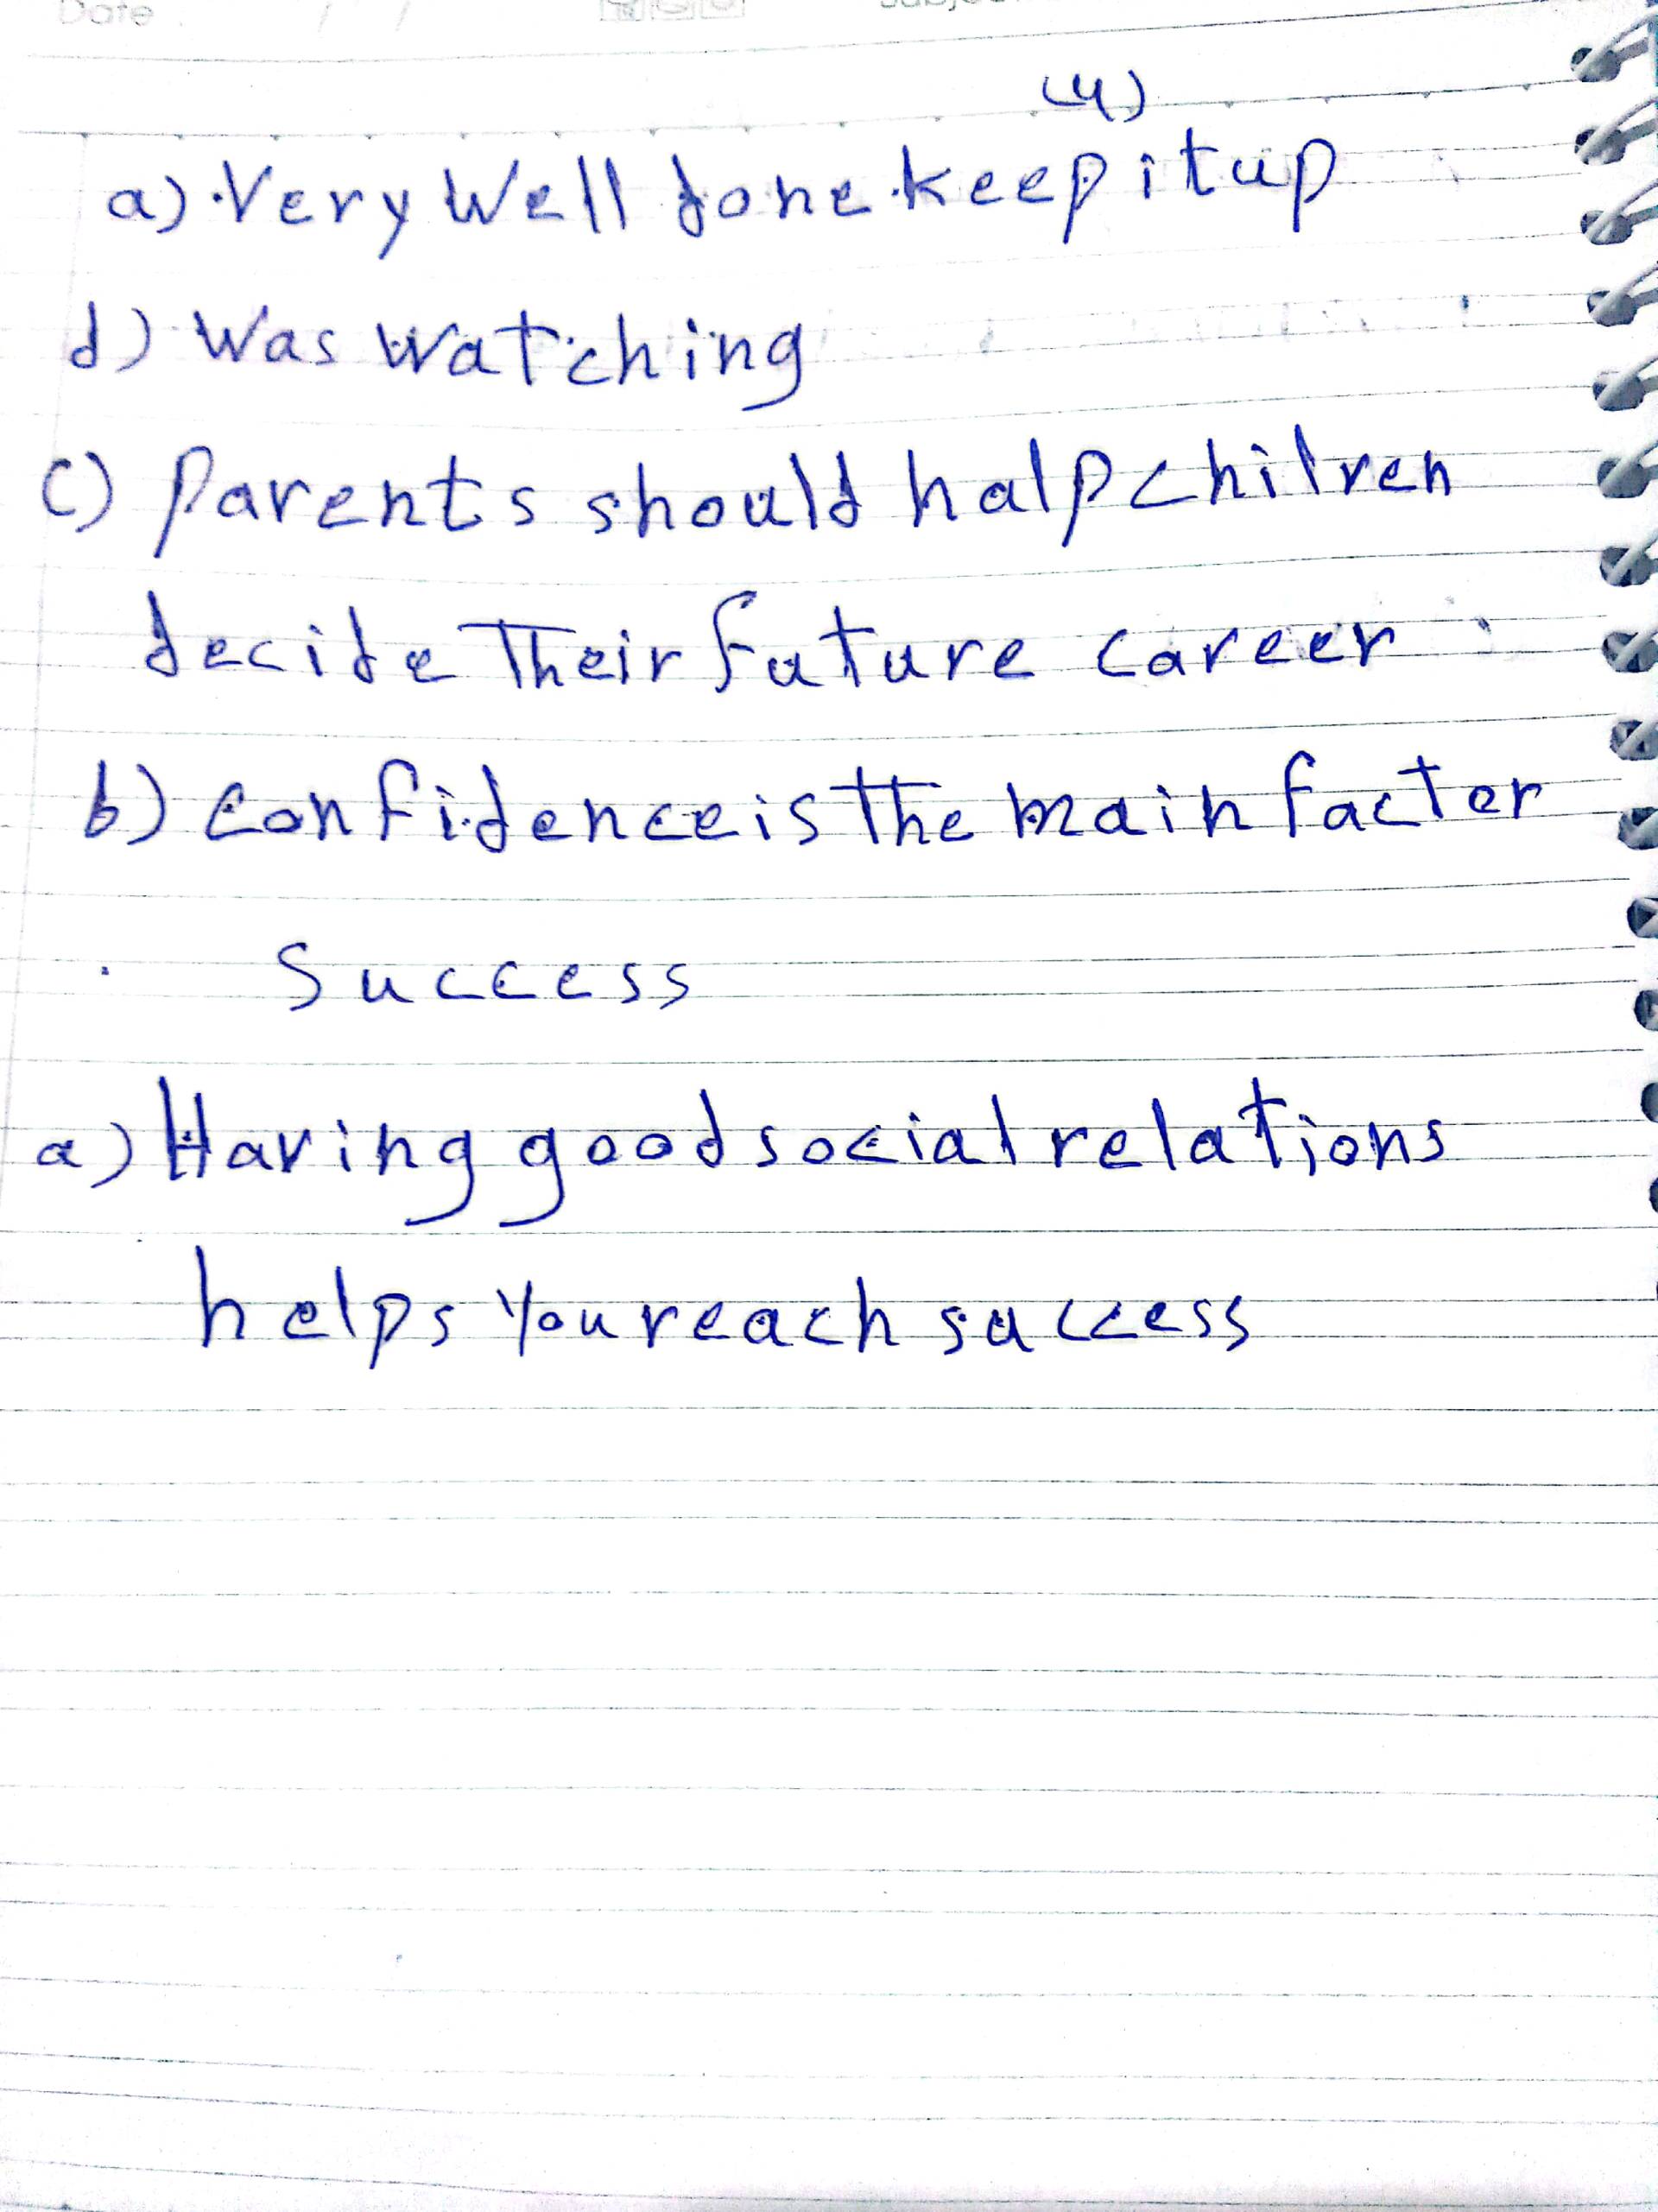 Date / /
(4)
a) Very Well done keep it up
d) Was watching
c) Parents should halp chilren
decide Their future career
b) Confidence is The main facter
Success
a) Having good social relations
helps You reach success